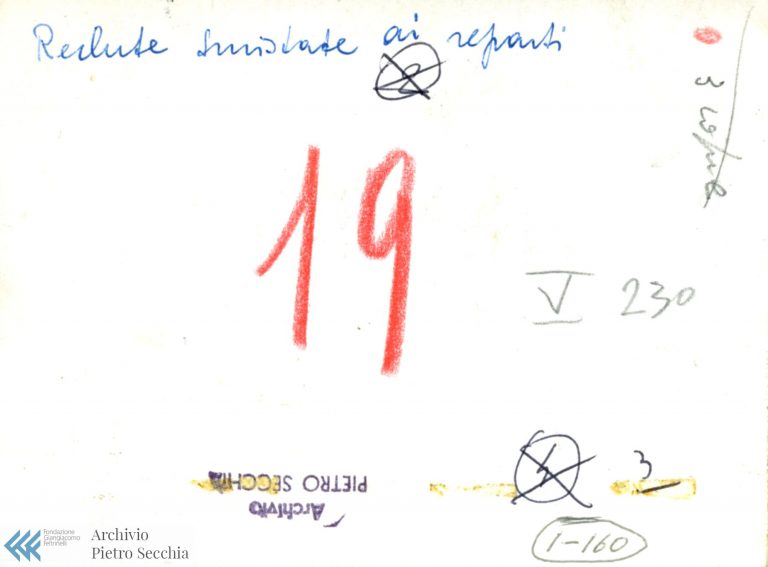 Reclute smistate ai reparti
2
3 copie
19
V 230
4
3
PIETRO SECCHIA
Archivio
1-160
Fondazione
Giangiacomo
Feltrinelli
Archivio
Pietro Secchia